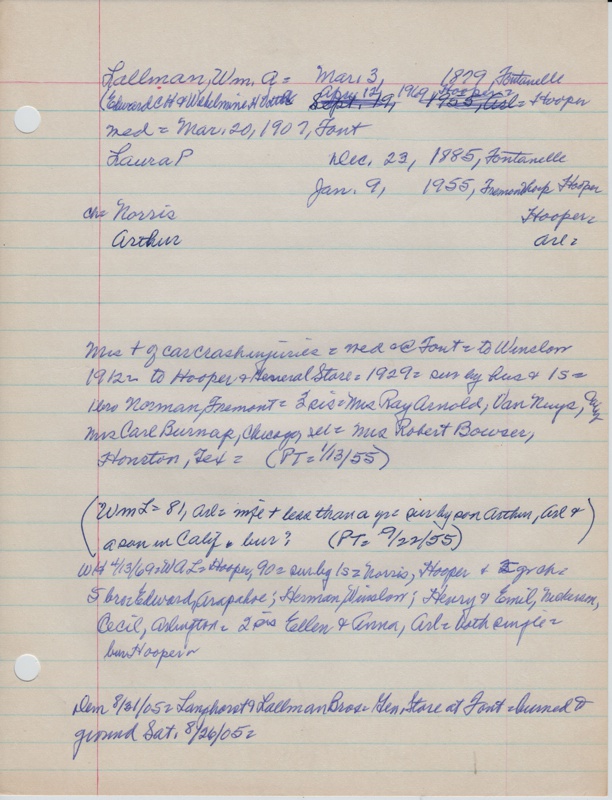 Lallman, Wm. A = Mar. 3, 1879, Fontanelle
(Edward CH & Wilhelmine H Apr. 12, 1969 Hooper =
Sept. 19, 1955, Arl = Hooper
med = Mar. 20, 1907, Font
Laura P Dec. 23, 1885, Fontanelle
Jan. 9, 1955, Hooper
ch = Norris Hooper =
Arthur Arl =
Mrs + of car crash injuries = med @ Font = to Winslow
1912 = to Hooper & General Store = 1929 = sur by hus & 1s =
1 bro Norman, Fremont = 3 sis = Mrs Ray Arnold, Van Nuys,
Mrs Carl Burnap, Chicago, Mrs Robert Bowser,
Houston, Tex = (PT = 1/13/55)
(Wm L = 81, Arl = wife + less than a yr = sur by son Arthur, Arl &
a son in Calif & bur? (PT = 9/22/55)
WH 4/13/69 = WA L = Hooper, 90 = sur by 1s = Norris, Hooper & gr ch =
5 bro: Edward, Arapahoe; Herman, Winslow; Henry & Emil, Nickerson,
Cecil, Arlington = 2 sis Ellen & Anna, Arl = both single =
bur Hooper =
Dem 8/31/05 = Langhorst & Lallman Bros = Gen. Store at Font = burned to
ground Sat. 8/26/05 =